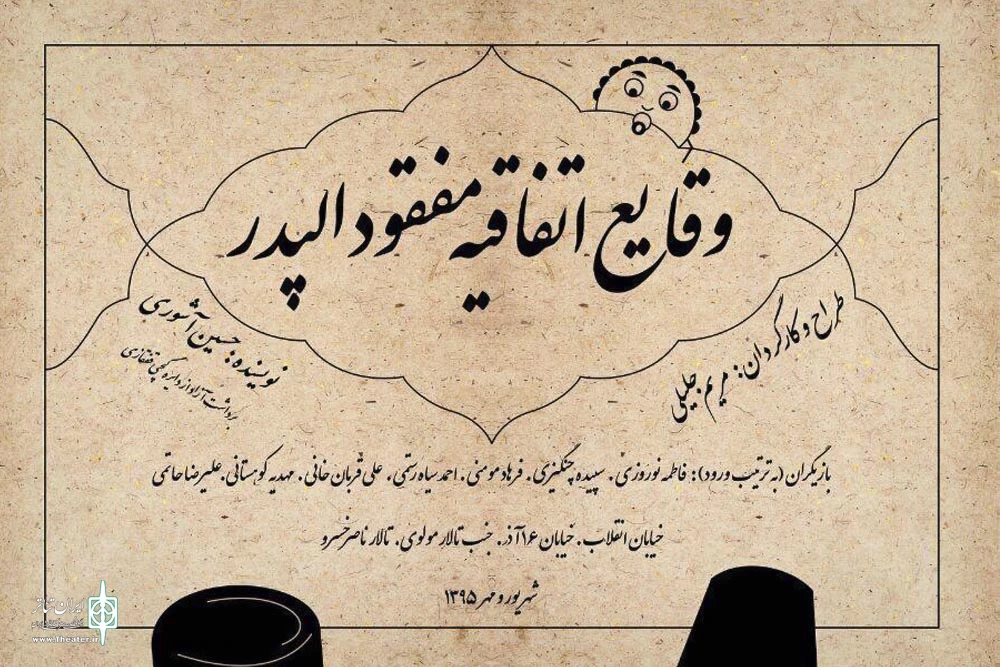 وقایع اتفاقیه مفقود الپدر
طراح و کارگردان: مریم جلیلی
نویسنده: حسین آشوری
برداشت آزاد از دایره گچی قفقازی
بازیگران (به ترتیب ورود): فاطمه نوروزی. سپیده چنگیزی. فرهاد مومنی. احمد سیاه رستمی. علی قربان خانی. مهدیه کوهستانی. علیرضا حاتمی
خیابان انقلاب. خیابان ۱۶ آذر. جنب تالار مولوی. تالار ناصرخسرو
شهریور و مهر ۱۳۹۵
ایران تئاتر
www.theater.ir